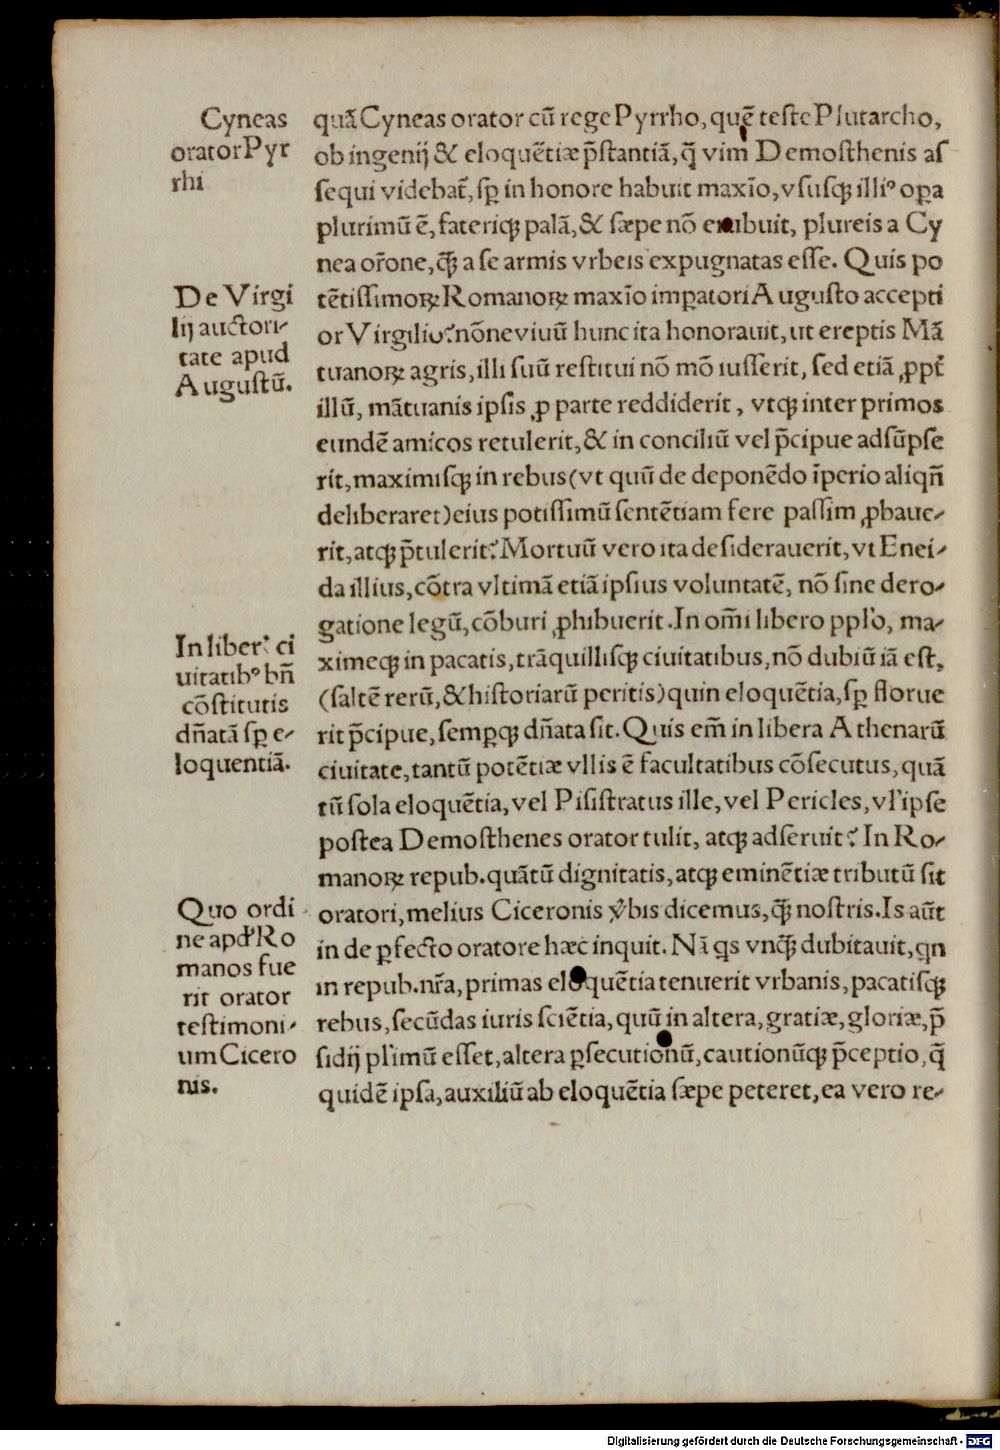 Cyneas
orator Pyr
rhi
De Virgi
lij auctori-
tate apud
Augustũ.
In liber᷑ ci
uitatibꝰ bñ
cõstitutis
dñatã sꝑ e-
loquentiã.
Quo ordi
ne apď Ro
manos fue
rit orator
testimoni-
um Cicero
nis.
quã Cyneas orator cũ rege Pyrrho, quẽ teste Plutarcho,
ob ingenij & eloquẽtiæ p̃stantiã, q̃ vim Demosthenis aſ
ſequi videbat᷑, ſꝑ in honore habuit maxĩo, vſuſqꝫ illiꝰ oꝑa
plurimũ ẽ, fateriqꝫ palã, & ſæpe nõ erubuit, plureis a Cy
nea or̃one, q̃ꝫ a ſe armis vrbeis expugnatas eſſe. Quis po
tẽtiſſimoꝝ Romanoꝝ maxĩo imꝑatori Auguſto accepti
or Virgilio? nõne viuũ hunc ita honorauit, ut ereptis Mã
tuanoꝝ agris, illi ſuũ reſtitui nõ mõ iuſſerit, ſed etiã ꝓpt᷑
illũ, mãtuanis ipſis ꝓ parte reddiderit, vtqꝫ inter primos
eundẽ amicos retulerit, & in conciliũ vel p̃cipue adſũpſe
rit, maximiſqꝫ in rebus (vt quũ de deponẽdo ĩperio aliqñ
deliberaret) eius potiſſimũ ſentẽtiam fere paſſim ꝓbaue-
rit, atqꝫ p̃tulerit? Mortuũ vero ita deſiderauerit, vt Enei-
da illius, cõtra vltimã etiã ipſius voluntatẽ, nõ ſine dero-
gatione legũ, cõburi ꝓhibuerit. In om̃i libero ppl'o, ma-
ximeqꝫ in pacatis, trãquilliſqꝫ ciuitatibus, nõ dubiũ iã eſt,
(ſaltẽ rerũ, & hiſtoriarũ peritis) quin eloquẽtia, ſꝑ florue
rit p̃cipue, ſemꝑqꝫ dñata ſit. Quis em̃ in libera Athenarũ
ciuitate, tantũ potẽtiæ vllis ẽ facultatibus cõſecutus, quã
tũ ſola eloquẽtia, vel Piſiſtratus ille, vel Pericles, vl' ipſe
poſtea Demoſthenes orator tulit, atqꝫ adſeruit? In Ro-
manoꝝ repub. quãtũ dignitatis, atqꝫ eminẽtiæ tributũ ſit
oratori, melius Ciceronis v̾bis dicemus, q̃ꝫ noſtris. Is aũt
in de ꝑfecto oratore hæc inquit. Nã qs vnq̃ꝫ dubitauit, qn
in repub. nr̃a, primas eloquẽtia tenuerit vrbanis, pacatiſqꝫ
rebus, ſecũdas iuris ſciẽtia, quũ in altera, gratiæ, gloriæ, p̃
ſidij pl'imũ eſſet, altera ꝑſecutionũ, cautionũqꝫ p̃ceptio, q̃
quidẽ ipſa, auxiliũ ab eloquẽtia ſæpe peteret, ea vero re-
Digitalisierung gefördert durch die Deutsche Forschungsgemeinschaft - DFG